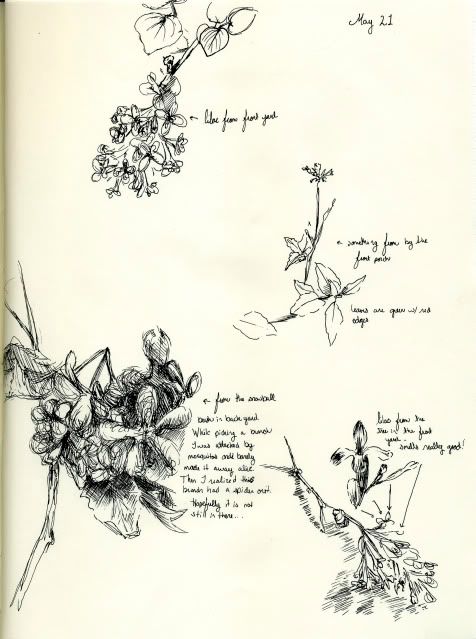 May 21
← lilac from front yard
← something from by the
front porch
leaves are green w/ red
edges
← from the snowball
bush in back yard.
While picking a bunch
I was attacked by
mosquitos and barely
made it away alive.
Then I realized this
bunch had a spider on it.
Hopefully it is not
still in there...
from the
tree in the front
yard.
smells really good!